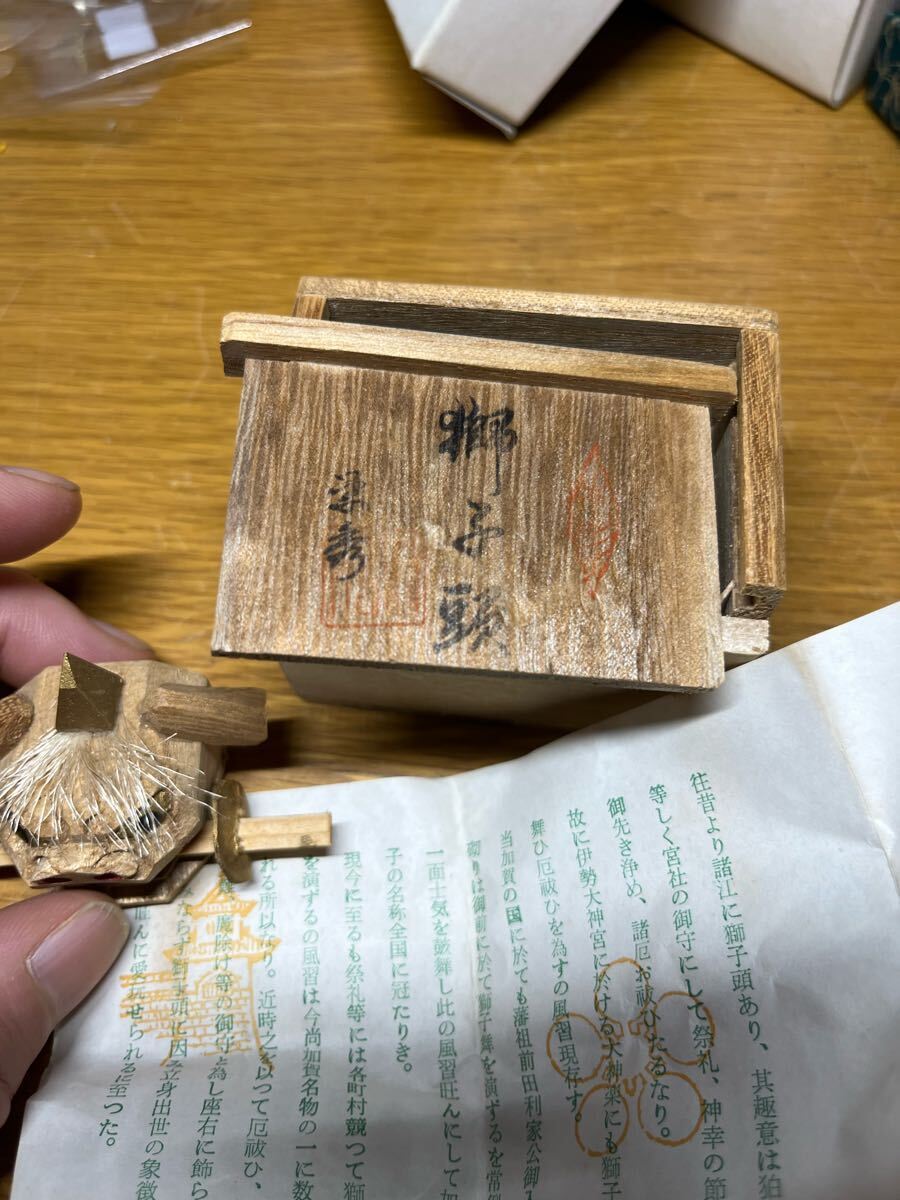 獅子頭
往昔より諸江に獅子頭あり、其趣意は狛
等しく宮社の御守にして祭礼、神幸の節
御先き浄め、諸厄お祓ひたるなり。
故に伊勢大神宮に於ける大神楽にも獅子
舞ひ厄祓ひを為すの風習現存す。
当加賀の国に於ても藩祖前田利家公御入
砌りは御前に於て獅子舞を演ずるを常例
一面士気を鼓舞し此の風習旺んにして加
子の名称全国に冠たりき。
現今に至るも祭礼等には各町村競つて獅
を演ずるの風習は今尚加賀名物の一に数
れる所以なり。近時之を以つて厄祓ひ、
魔除け等の御守と為し座右に飾ら
ならず獅子頭に因み立身出世の象徴
旺んに愛玩せられるに至つた。